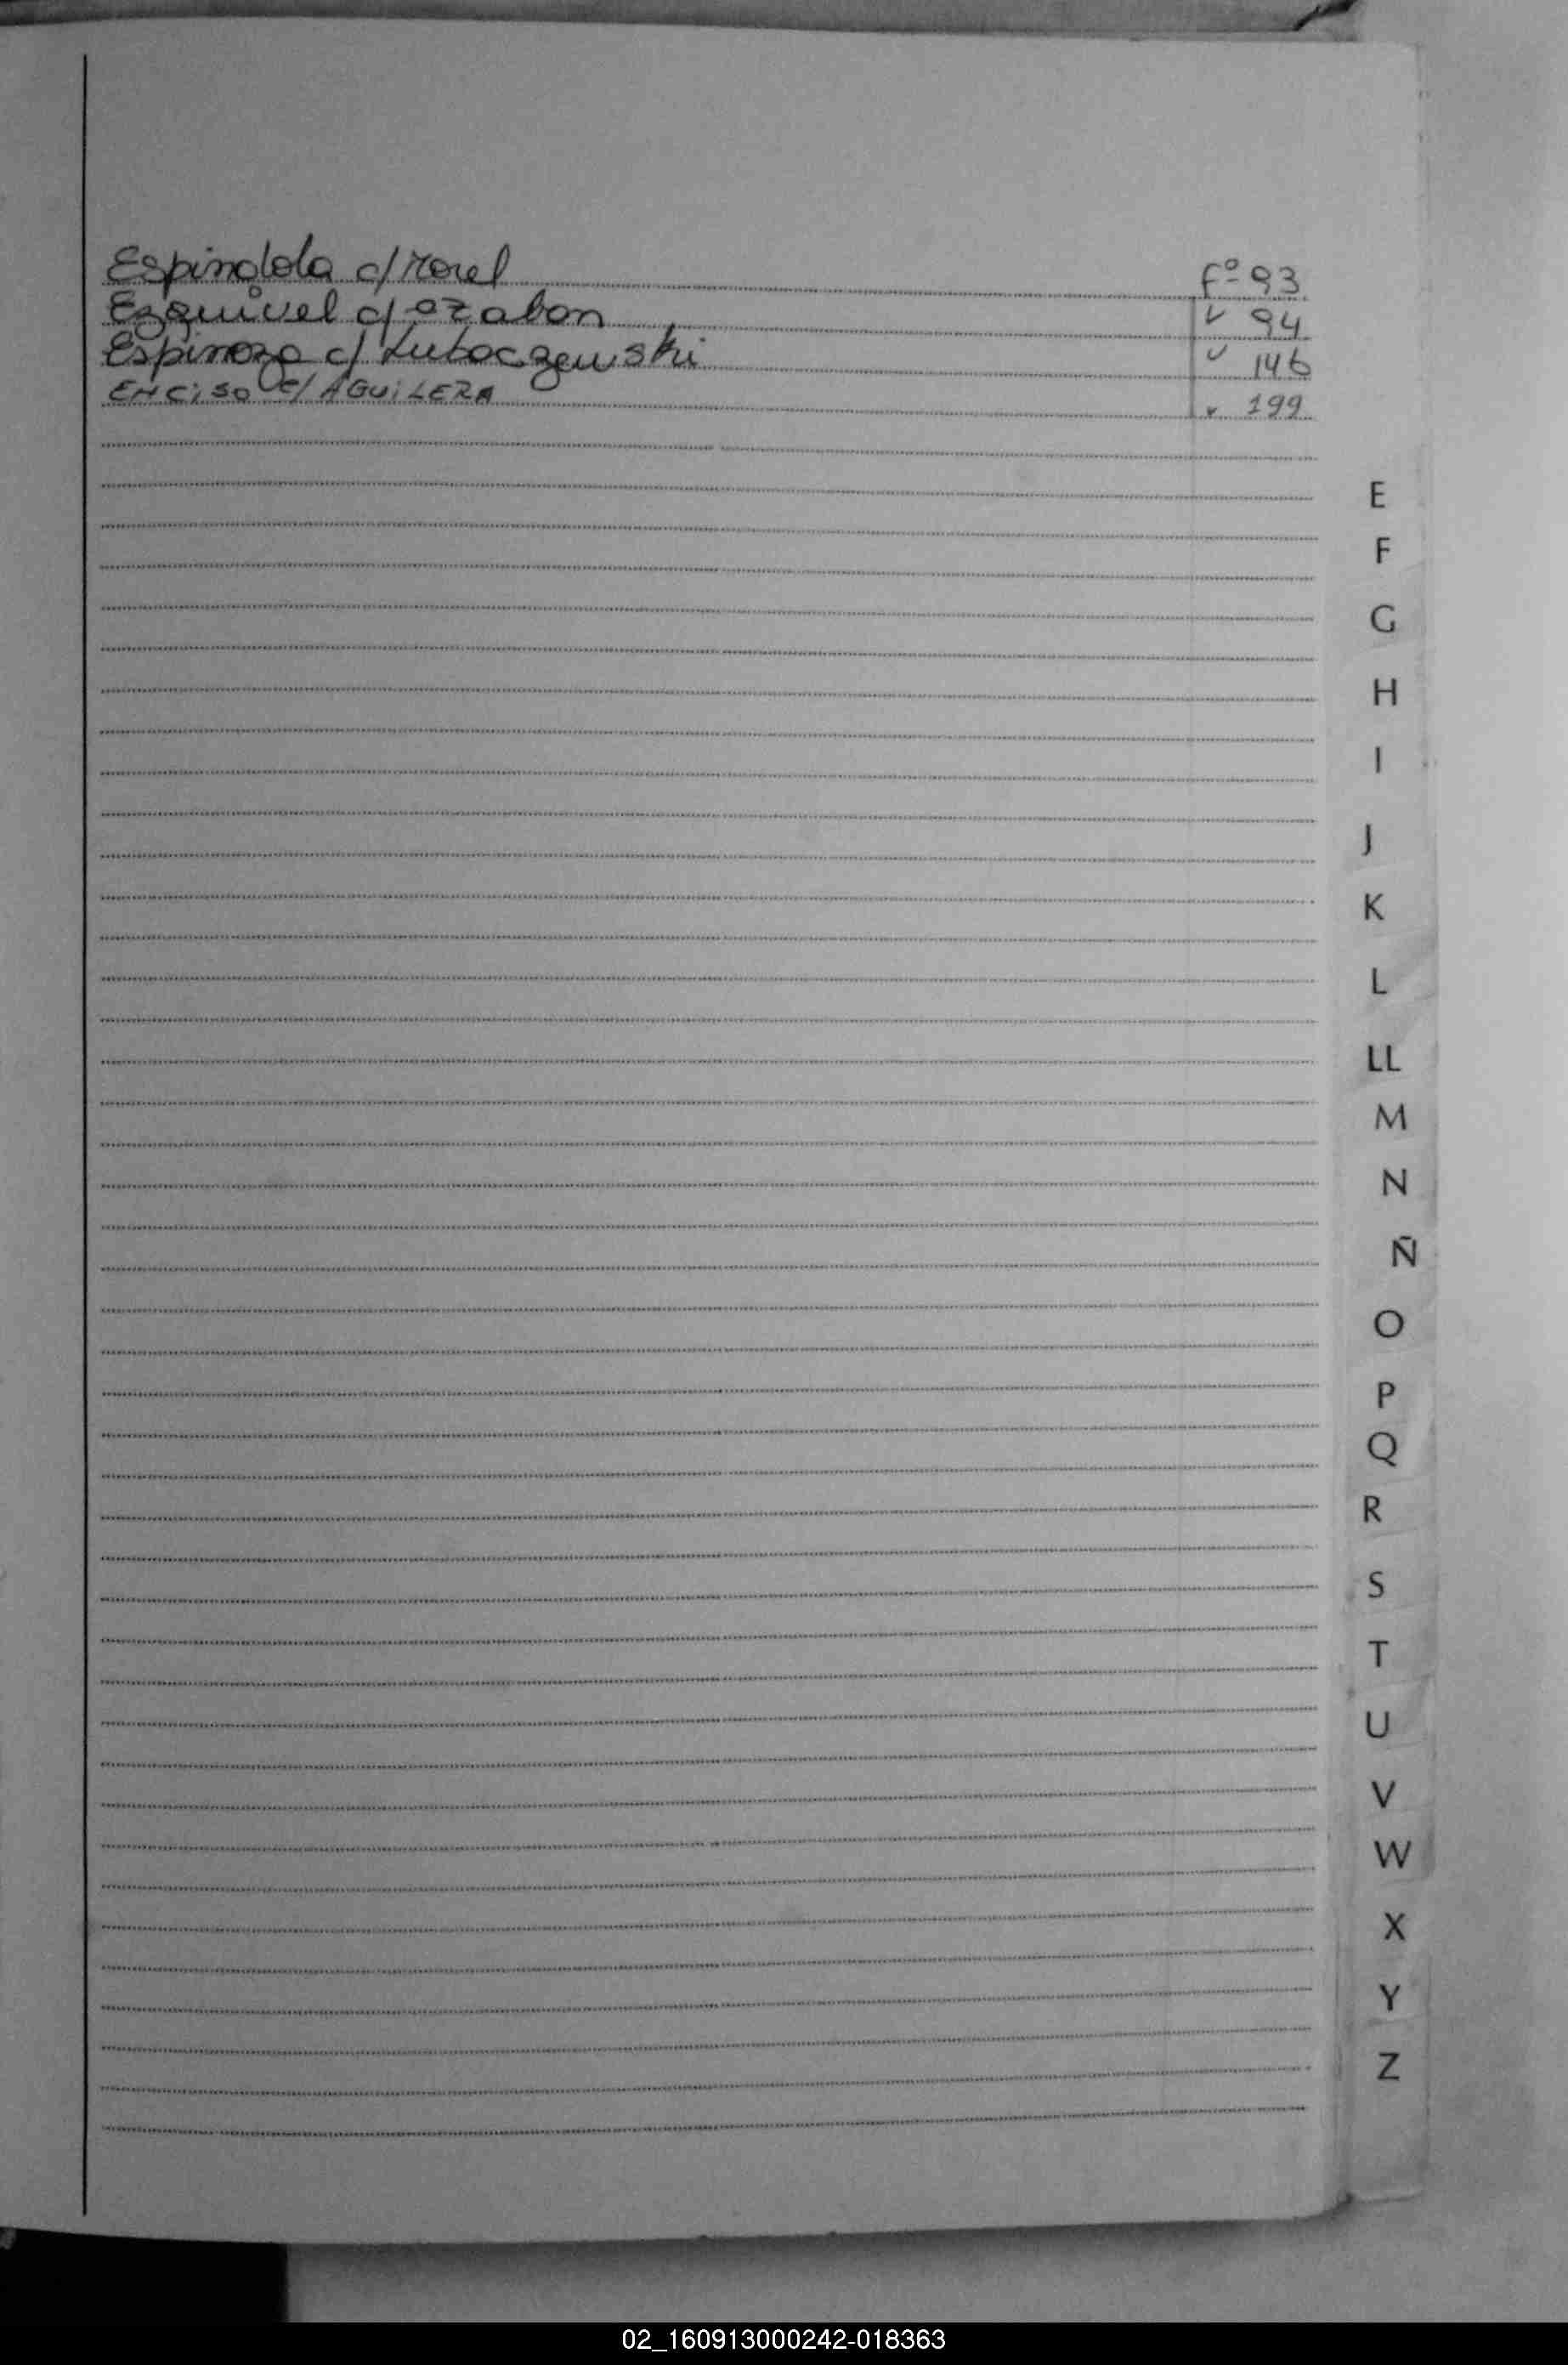 Espindola c/ Morel Fº 93
Ezquivel c/ Ozabon " 94
Espinoza c/ Lubaczewski " 146
ENCISO C/ AGUILERA " 199
E
F
G
H
I
J
K
L
LL
M
N
Ñ
O
P
Q
R
S
T
U
V
W
X
Y
Z
02_160913000242-018363